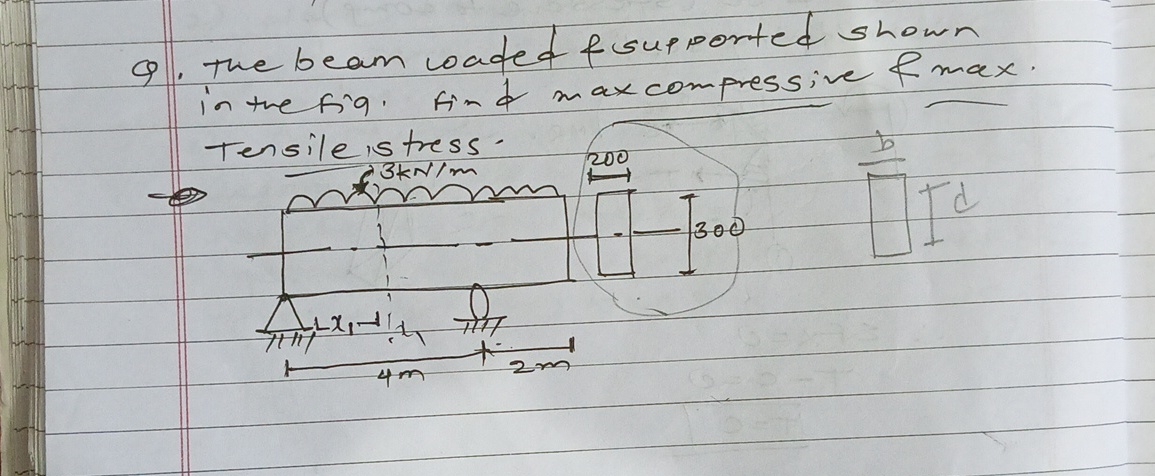 Q. The beam loaded & supported shown
in the fig. find max compressive & max.
Tensile stress.
3kN/m
200
b
d
300
x₁
4m
2m